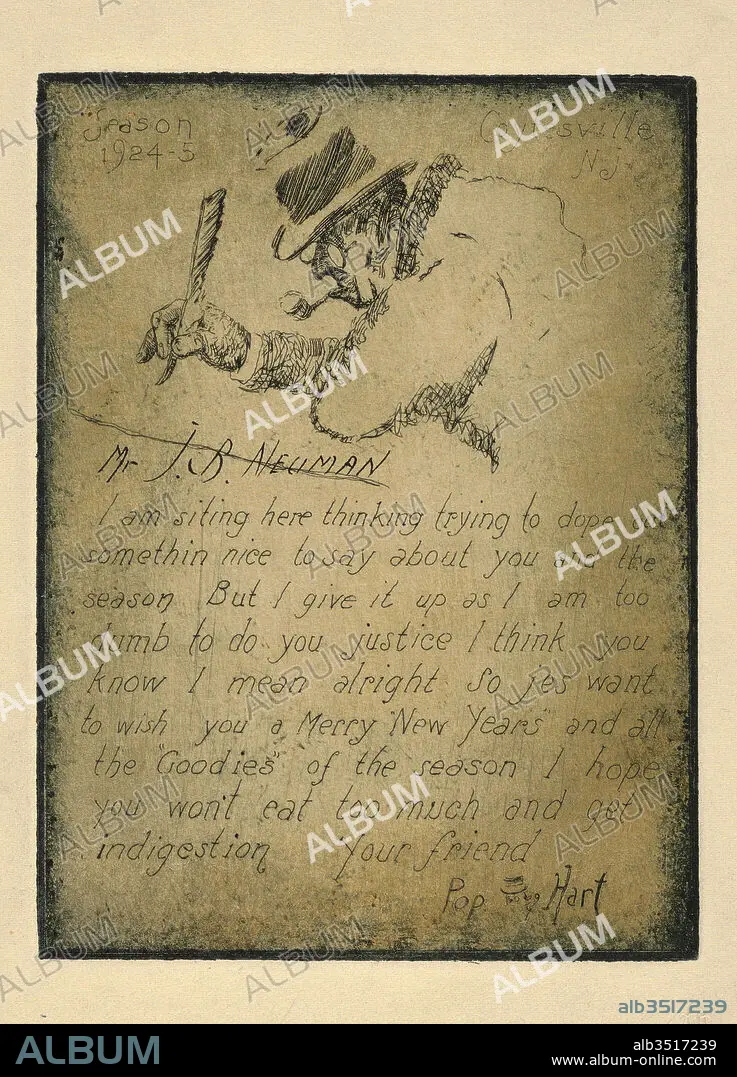 Season
1924-5
Coytesville
N-J-
Mr J. B. NEUMAN
I am siting here thinking trying to dope
somethin nice to say about you and the
season But I give it up as I am too
dumb to do you justice I think you
know I mean alright So jes want
to wish you a Merry "New Years" and all
the "Goodies" of the season I hope
you won't eat too much and get
indigestion Your friend
Pop Hart
ALBUM
alb3517239
ALBUM
alb3517239
www.album-online.com